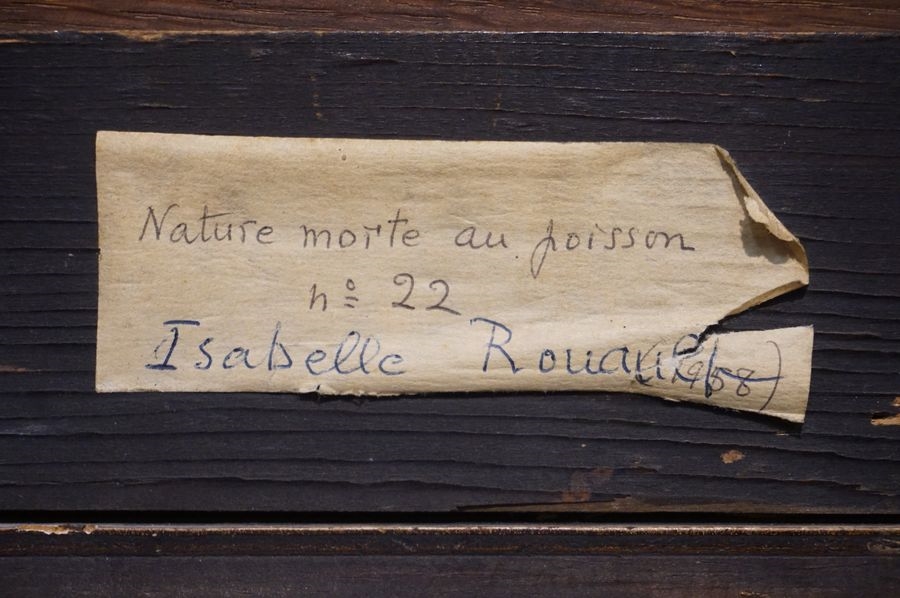 Nature morte au poisson
nº 22
Isabelle Rouault (1958)